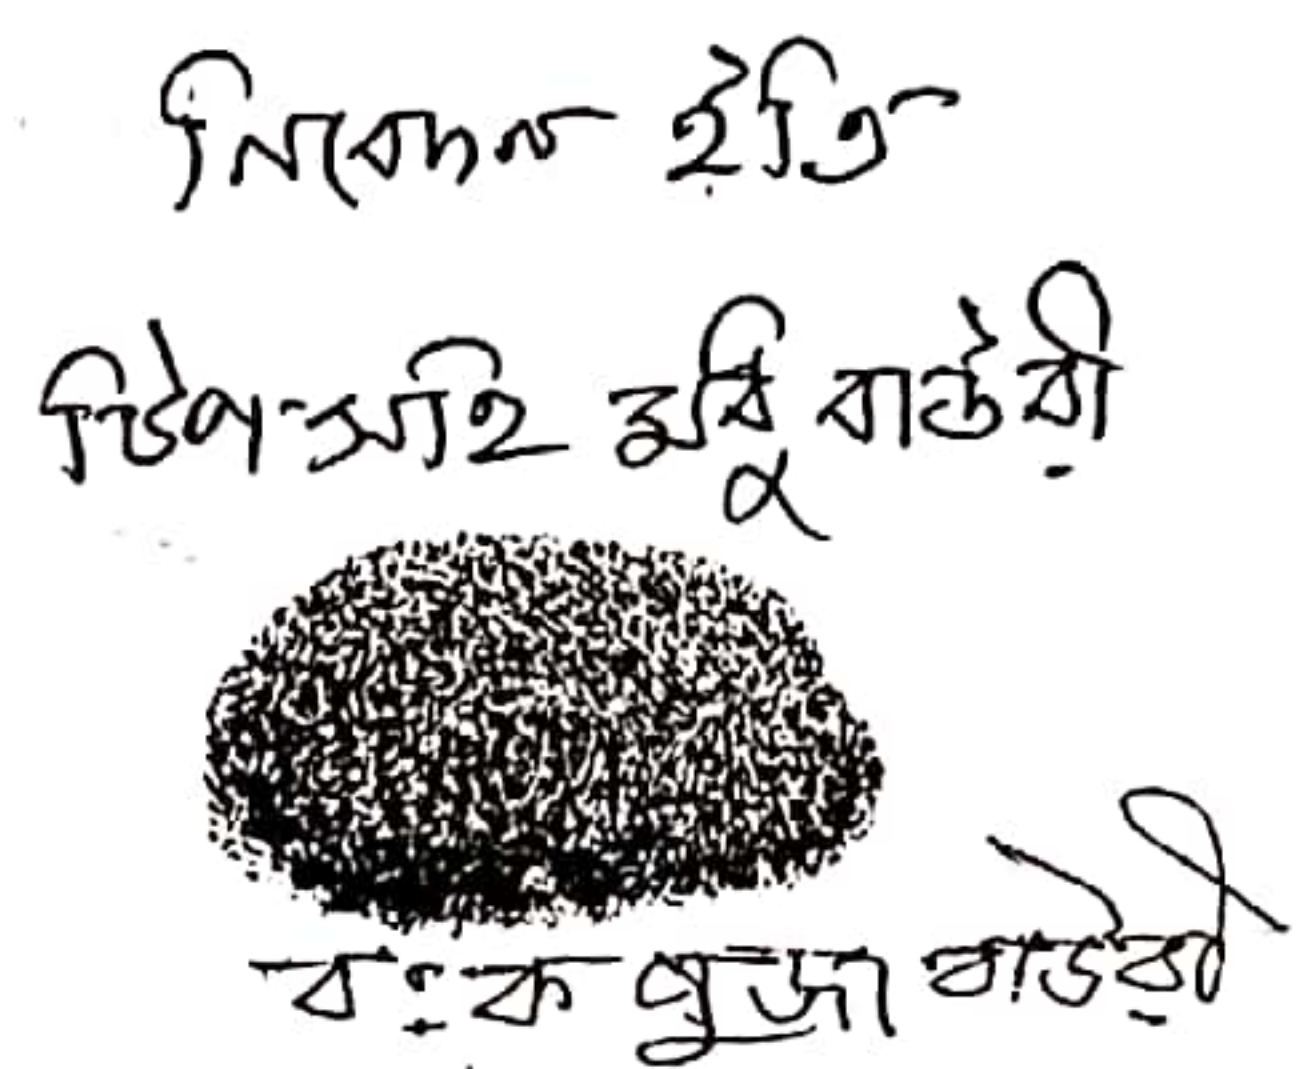 নিবেদন ইতি
টিপ-সহি বাউরী
ব:ক পুজা বাউরী